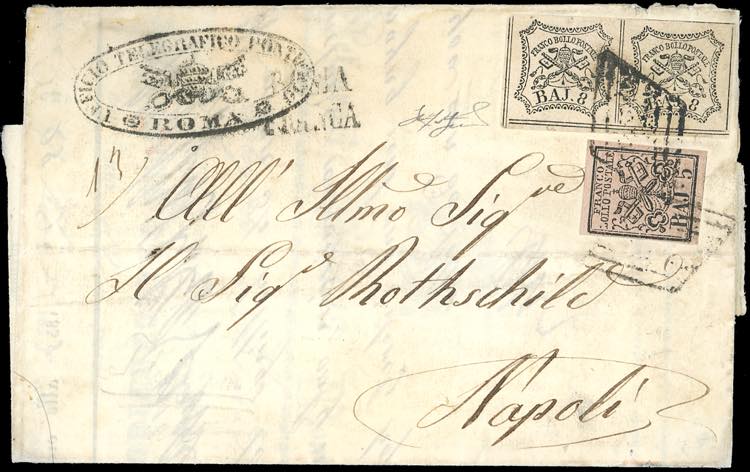 UFFICIO TELEGRAFICO PONTIFICIO
ROMA
ROMA
FRANCA
FRANCO BOLLO POSTALE
BAJ. 8
FRANCO BOLLO POSTALE
8
FRANCO
BOLLO POSTALE
BAJ. 5
13
All' Illmo Sigre
Il Sigre Rothschild
Napoli